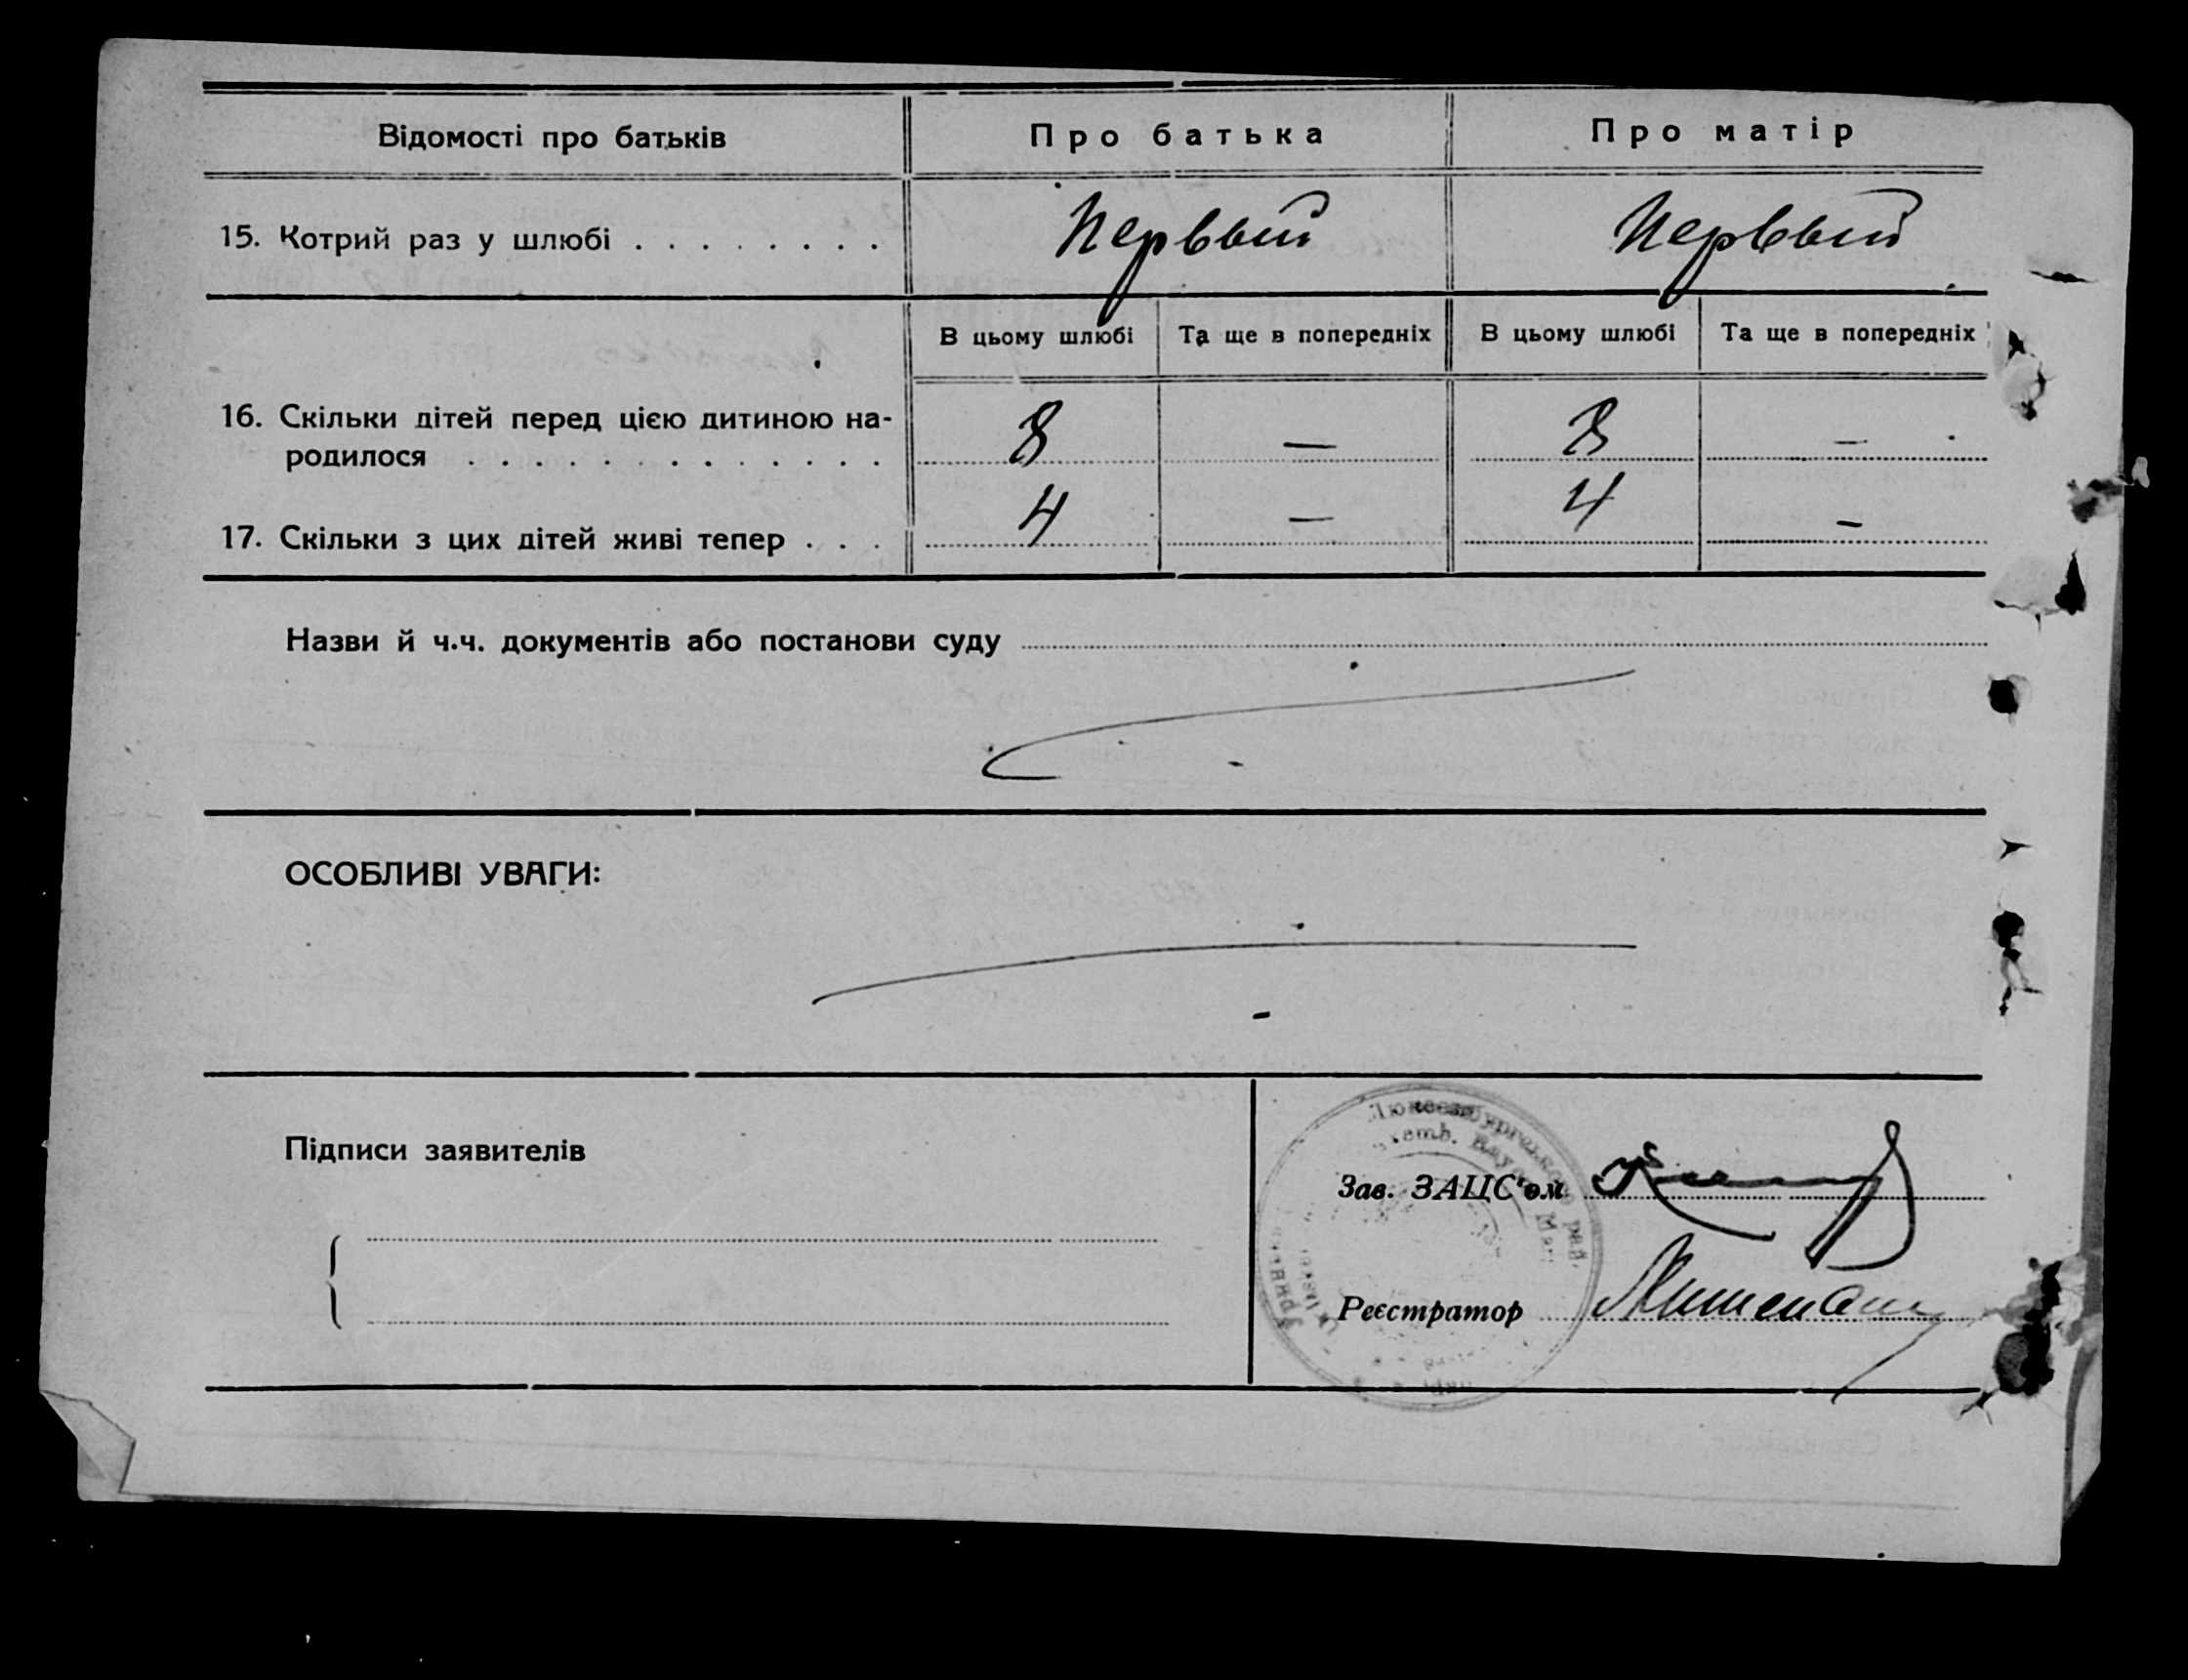 Відомості про батьків Про батька Про матір
15. Котрий раз у шлюбі . . . . . . . . Первый Первый
В цьому шлюбі Та ще в попередніх В цьому шлюбі Та ще в попередніх
16. Скільки дітей перед цією дитиною на-
родилося . . . . . . . . . . . . . 8 — 8 —
17. Скільки з цих дітей живі тепер . . . 4 — 4 —
Назви й ч.ч. документів або постанови суду
ОСОБЛИВІ УВАГИ:
Підписи заявителів
Зав. ЗАЦС'ом
Реєстратор